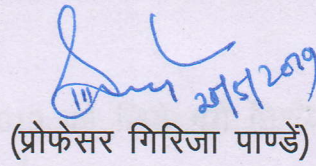 20/5/2019
(प्रोफेसर गिरिजा पाण्डें)